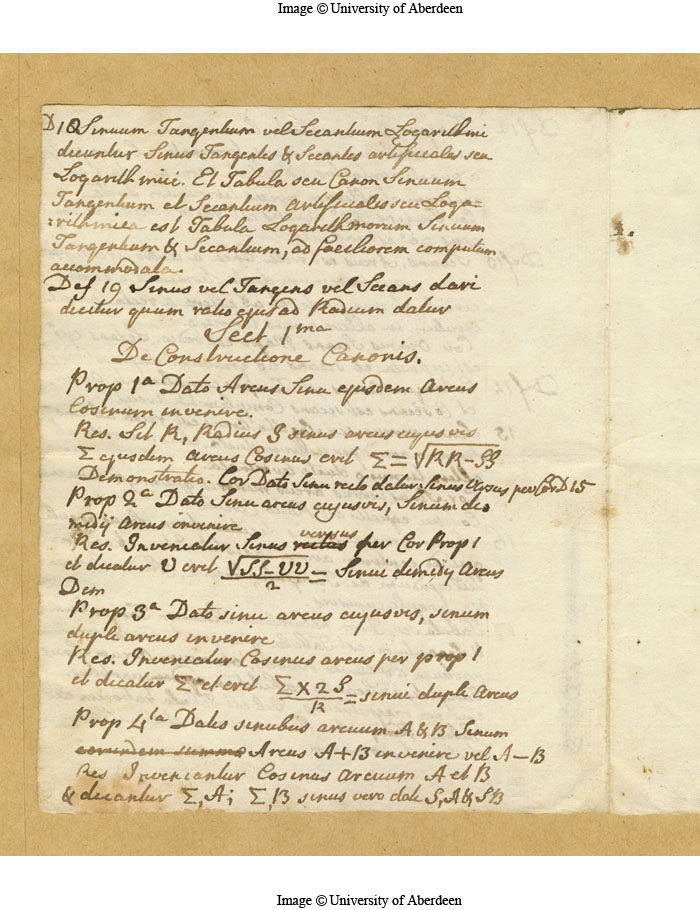 Image © University of Aberdeen
D 18 Sinuum Tangentium vel Secantium Logarithmi
dicuntur Sinus Tangentes & Secantes artificiales seu
Logarithmici. Et Tabula seu Canon Sinuum
Tangentium et Secantium Artificiales seu Loga=
:rithmica est Tabula Logarithmorum Sinuum
Tangentium & Secantium, ad faciliorem computum
accommodata.
Def 19 Sinus vel Tangens vel Secans dari
dicitur quum ratio ejus ad Radium datur
Sect 1ma
De Constructione Canonis.
Prop 1a Dato Arcus Sinu ejusdem Arcus
Cosinum invenire.
Res. Sit R, Radius S sinus arcus cujusvis
Σ ejusdem arcus Cosinus erit Σ = √RR - SS
Demonstratio. Cor Dato Sinu recto datur sinus versus per Cor D 15
Prop 2a Dato Sinu arcus cujusvis, Sinum di
midij arcus invenire
versus
Res. Inveniatur Sinus rectus per Cor Prop 1
et dicatur V erit √SS-VV/2 = Sinui dimidij Arcus
Dem
Prop 3a Dato sinu arcus cujusvis, sinum
dupli arcus invenire
Res. Inveniatur Cosinus arcus per prop 1
et dicatur Σ et erit Σ X 2S/R = sinui dupli Arcus
Prop 4ta Datis sinubus arcuum A & B Sinum
eorundem summæ Arcus A+B invenire vel A-B
Res Inveniantur Cosinus Arcuum A et B
& dicantur Σ,A; Σ,B sinus vero dati S,A & S,B
Image © University of Aberdeen